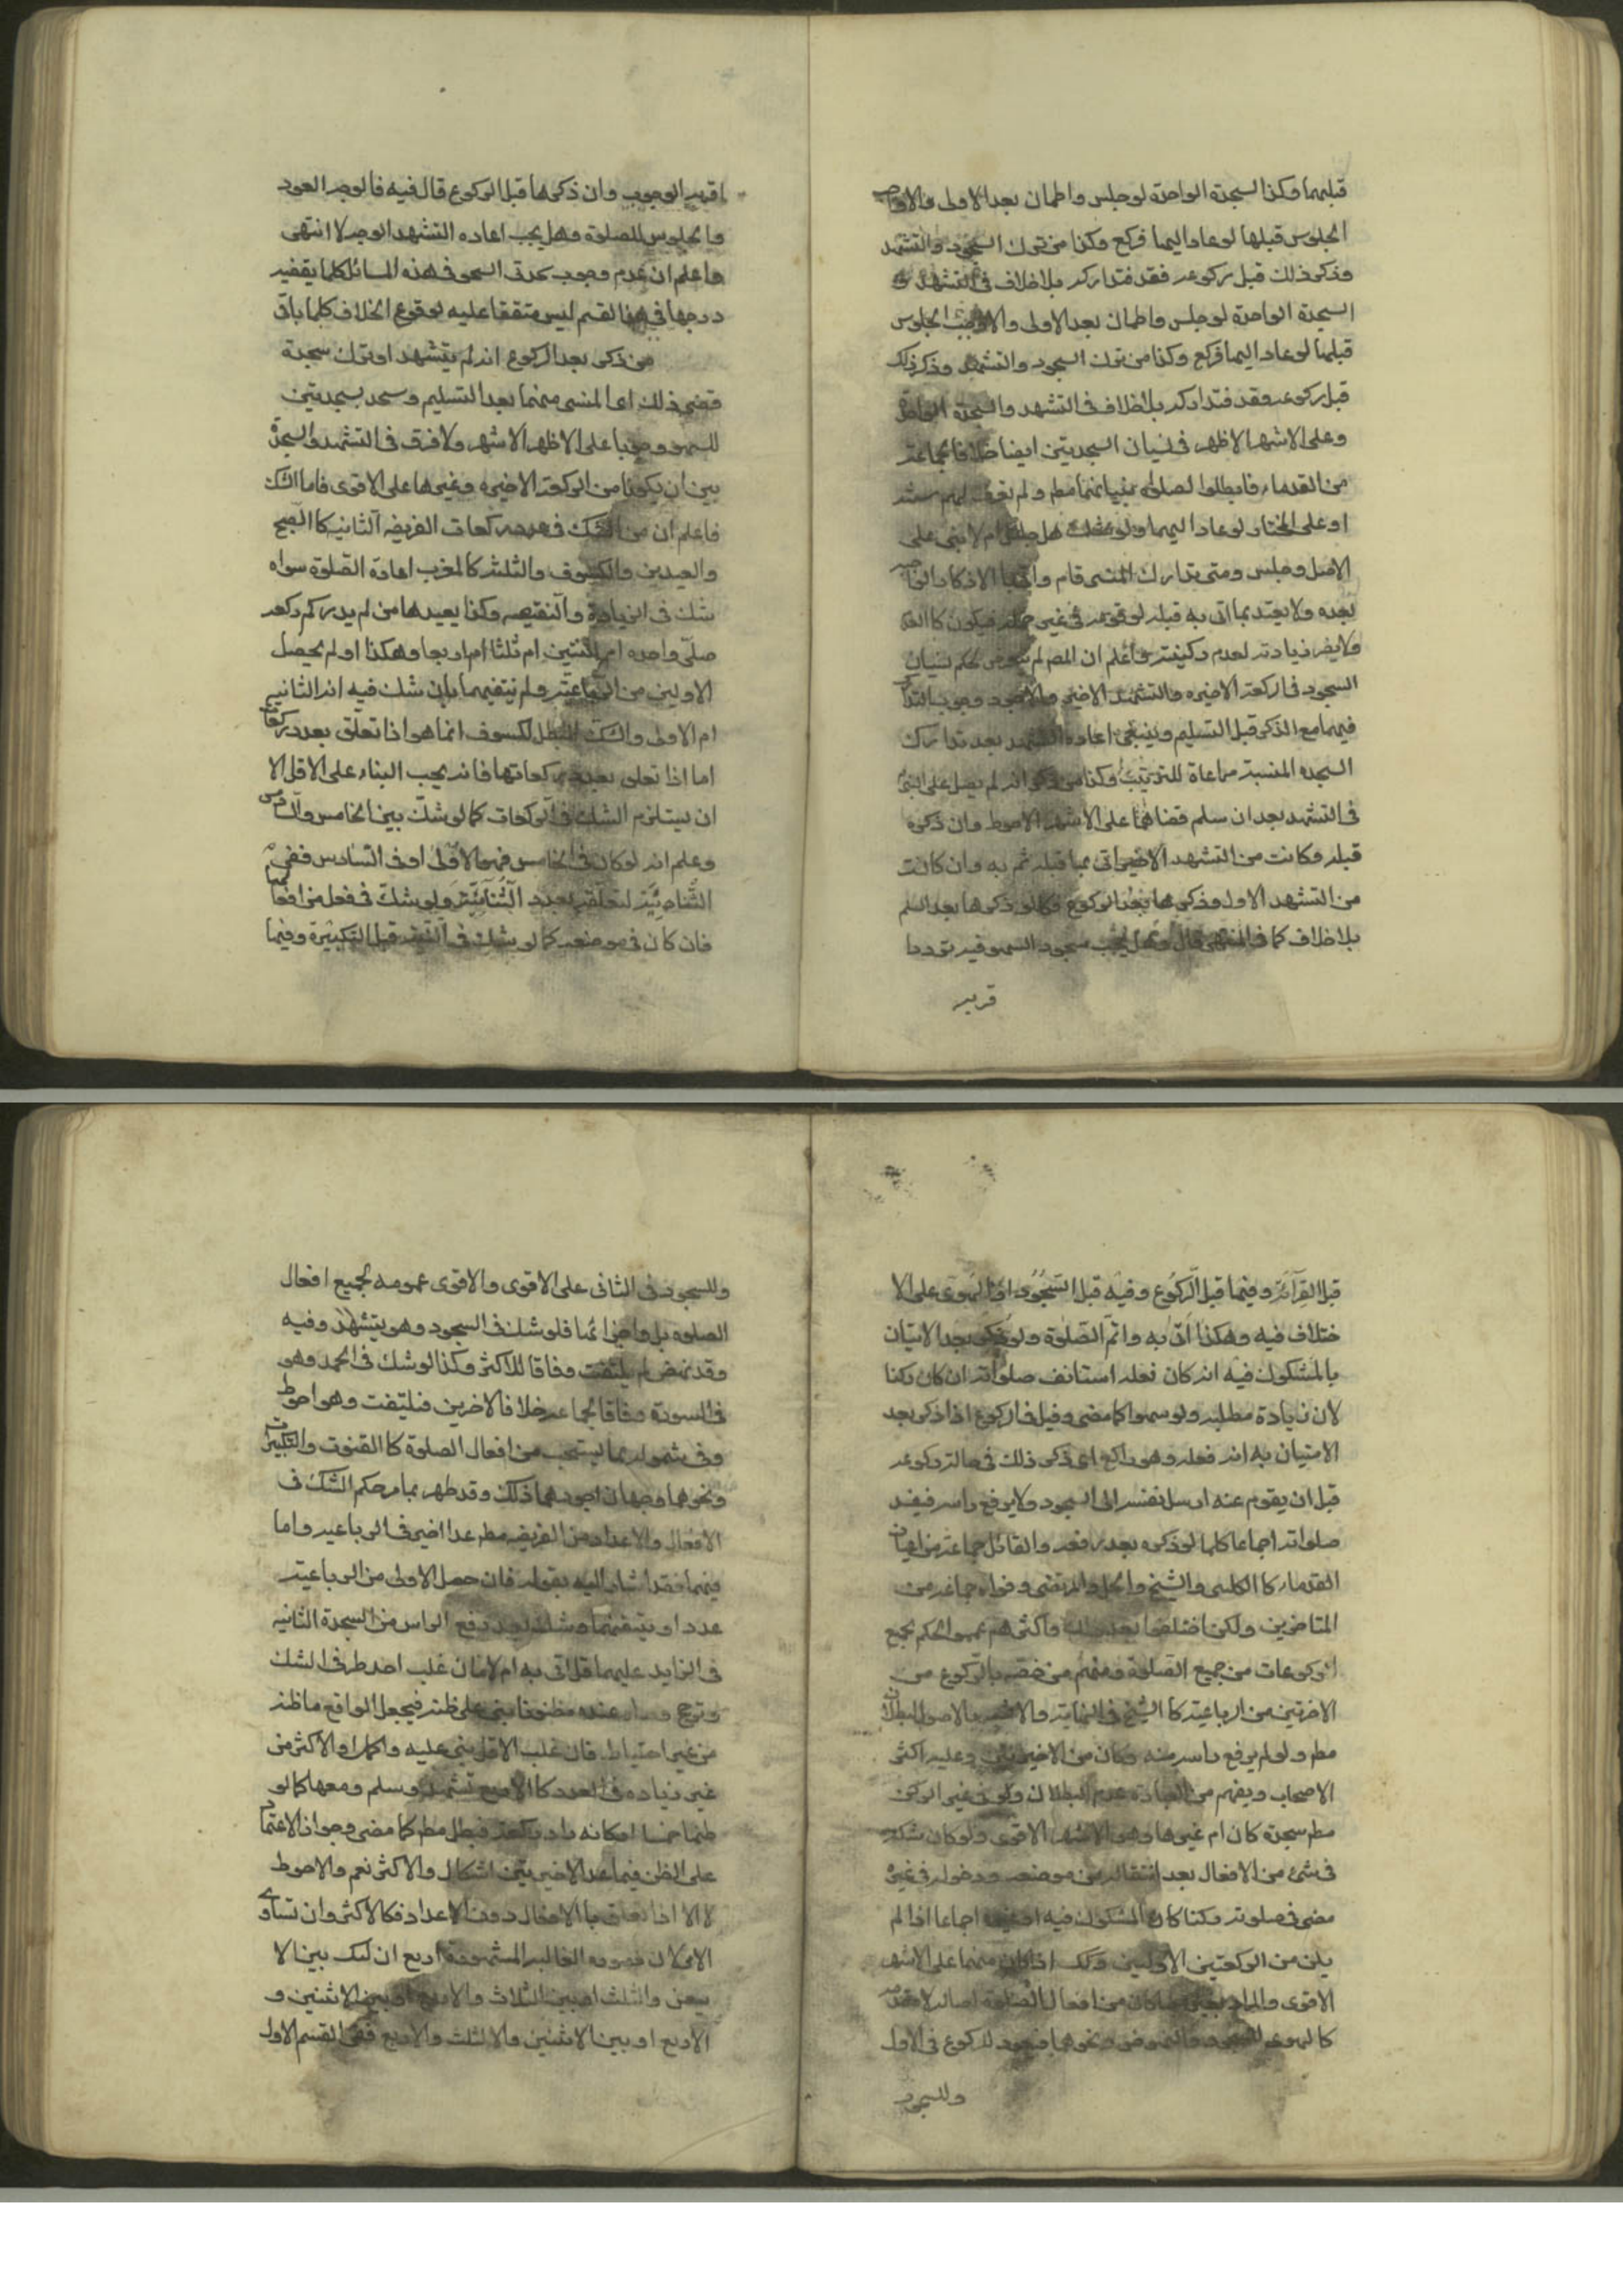 قبلهما وكذا السجدة الواحدة لو جلس واطمان بعد الاولى والا وجب
الجلوس قبلها لو عاد اليها فركع وكذا من ترك السجود والتشهد
وذكر ذلك قبل ركوعه فقد فتداركه بلا خلاف في التشهد و
السجدة الواحدة لو جلس واطمان بعد الاولى والا وجب الجلوس
قبلها لو عاد اليها فركع وكذا من ترك السجود والتشهد وذكر ذلك
قبل ركوعه وقعد فتداركه بلا خلاف في التشهد والسجدة الواحدة
وعلى الاشهر الاظهر في نسيان السجدتين ايضا خلافا لجماعة
من القدماء فابطلوا الصلوة بنسيانهما مطم ولم نعرف لهم سند
او على المختار لو عاد اليهما ولو شك هل جلس ام لا بنى على
الاصل وجلس ومتى تدارك المنسى قام واتى بالاذكار الواجب
بعده ولا يعتد بما اتى به قبله لوقوعه في غير محله فيكون كالعدم
ولا يضر زيادته لعدم ركنيته واعلم ان المصم لم يتعرض لحكم نسيان
السجود في الركعة الاخيره والتشهد الاخير والاجود وجوب التدارك
فيهما مع الذكر قبل التسليم وينبغى اعادة التشهد بعد تدارك
السجده المنسية مراعاة للترتيب وكذا من ذكر انه لم يصل على النبي
في التشهد بعد ان سلم قضاهما على الاشهر الاحوط وان ذكره
قبله وكانت من التشهد الاخير اتى بما قبله ثم به وان كانت
من التشهد الاول وذكرها بعد الركوع فكما لو ذكرها بعد السلم
بلا خلاف كما في المنتهى قال وهل يجب سجود السهو فيه ترددا
قريبه
اقربه الوجوب وان ذكرها قبل الركوع قال فيه فالوجه العود
والجلوس للصلوة وهل يجب اعاده التشهد الوجه لا انتهى
واعلم ان عدم وجوب سجدتى السهو في هذه المسائل كلها يقتضيه
درجها في هذا القسم ليس متفقا عليه لوقوع الخلاف كلما ياتى
من ذكر بعد الركوع انه لم يتشهد او ترك سجدة
قضى ذلك اى المنسى منهما بعد التسليم وسجد بسجدتين
للسهو وجوبا على الاظهر الاشهر ولا فرق في التشهد والسجدة
بين ان يكونا من الركعة الاخيره وغيرها على الاقوى فاما الشك
فاعلم ان من الشك في عدد ركعات الفريضه الثانيه كالصبح
والعيدين والكسوف والثلثه كالمغرب اعادة الصلوة سواه
شك في الزيادة والنقيصه وكذا يعيدها من لم يدر كم ركعه
صلى واحده ام اثنتين ام ثلثا ام اربعا وهكذا او لم يحصل
الاولين من الرباعية ولم يتيقنهما بان شك فيه انه الثانيه
ام الاولى والشك المبطل للكسوف انما هو اذا تعلق بعدد ركعاته
اما اذا تعلق بعدد ركعاتها فانه يجب البناء على الاقل الا
ان يستلزم الشك في الركعات كما لو شك بين الخامس والسادس
وعلم انه لو كان في الخامس فهو الاولى او في السادس ففى
الثنائية لتعلقه بعدد الثنائية ولو شك في فعل من افعالهما
فان كان في موضعه كما لو شك في النية قبل التكبيرة وفيها
قبل القرآئة وفيها قبل الركوع وفيه قبل السجود او الهوى على الا
ختلاف فيه وهكذا اتى به واتم الصلوة ولو ذكر بعد الاتيان
بالمشكوك فيه انه كان فعله استانف صلواته ان كان ركنا
لان زيادة مطلبه ولو سهوا كما مضى وقيل في الركوع اذا ذكر بعد
الاتيان به انه فعله وهو راكع اى ذكر ذلك في حالة ركوعه
قبل ان يقوم عنه ارسل نفسه الى السجود ولا يرفع راسه فيفسد
صلواته اجماعا كلما لو ذكره بعد رفعه والقائل جماعة من اعيان
القدماء كالكلينى والشيخ والحلى والمرتضى وقواه جماعة من
المتاخرين ولكن اختلفوا بعد ذلك واكثرهم عمموا الحكم لجميع
الركوعات من جميع الصلوة ومنهم من خصه بالركوع من
الاخرتين من الرباعية كالشيخ في النهاية والاشهر والاصول البطلان
مطم ولو لم يرفع راسه منه وكان من الاخيرتين وعليه اكثر
الاصحاب ويفهم من العبارة عدم البطلان ولو في غير الركن
مطم سجدة كان ام غيرها وهو الاشهر الاقوى ولو كان شكه
في شئ من الافعال بعد انتقاله من موضعه ودخوله في غيره
مضى في صلوته ركنا كان المشكوك فيه او غيره اجماعا اذا لم
يكن من الركعتين الاوليين وكذلك اذا كان منهما على الاشهر
الاقوى والمراد بغيره ما كان من افعال الصلوة اصالة لا مقدمه
كالهوى للسجود والنهوض ونحوهما فيعود للركوع في الاول
وللسجود
وللسجود في الثانى على الاقوى والاقوى عمومه لجميع افعال
الصلوه بل واجزائها فلو شك في السجود وهو يتشهد وفيه
وقد نهض لم يلتفت وفاقا للاكثر وكذا لو شك في الحمد وهو
في السورة وفاقا لجماعه خلافا لاخرين فليلتفت وهو احوط
وفى شموله بما يستحب من افعال الصلوة كالقنوت والتكبيرات
ونحوها وجهان اجودهما ذلك وقد ظهر بما مر حكم الشك في
الافعال والاعداد من الفريضه مطم عدا اخير في الرباعيه واما
فيهما فقد اشار اليه بقوله فان حصل الاولى من الرباعيه
عددا وتيقنهما وشك بعد رفع الراس من السجدة الثانيه
في الزايد عليهما هل اتى به ام لا فان غلب احد طرفى الشك
وترجح وصار عنده مظنونا بنى على ظنه فيجعل الواقع ما ظنه
من غير احتياط فان غلب الاقل بنى عليه واكمل او الاكثر من
غير زياده في العدد كالاربع تشهد وسلم ومعها كما لو
ظنها خمسا امكانه زاد ركعة فبطل مطم كما مضى وجواز الاعتماد
على الظن فيما عدا الاخيرتين اشكال والاكثر نعم والاحوط
لا الا اذا تعلق بالافعال دون الاعداد فكالاكثر وان تساوى
الامران فصوره الغالبه المشهورة اربع ان شك بين الا
ثنين والثلث او بين الثلاث والاربع او بين الاثنين و
الاربع او بين الاثنين والثلث والاربع ففى القسم الاول